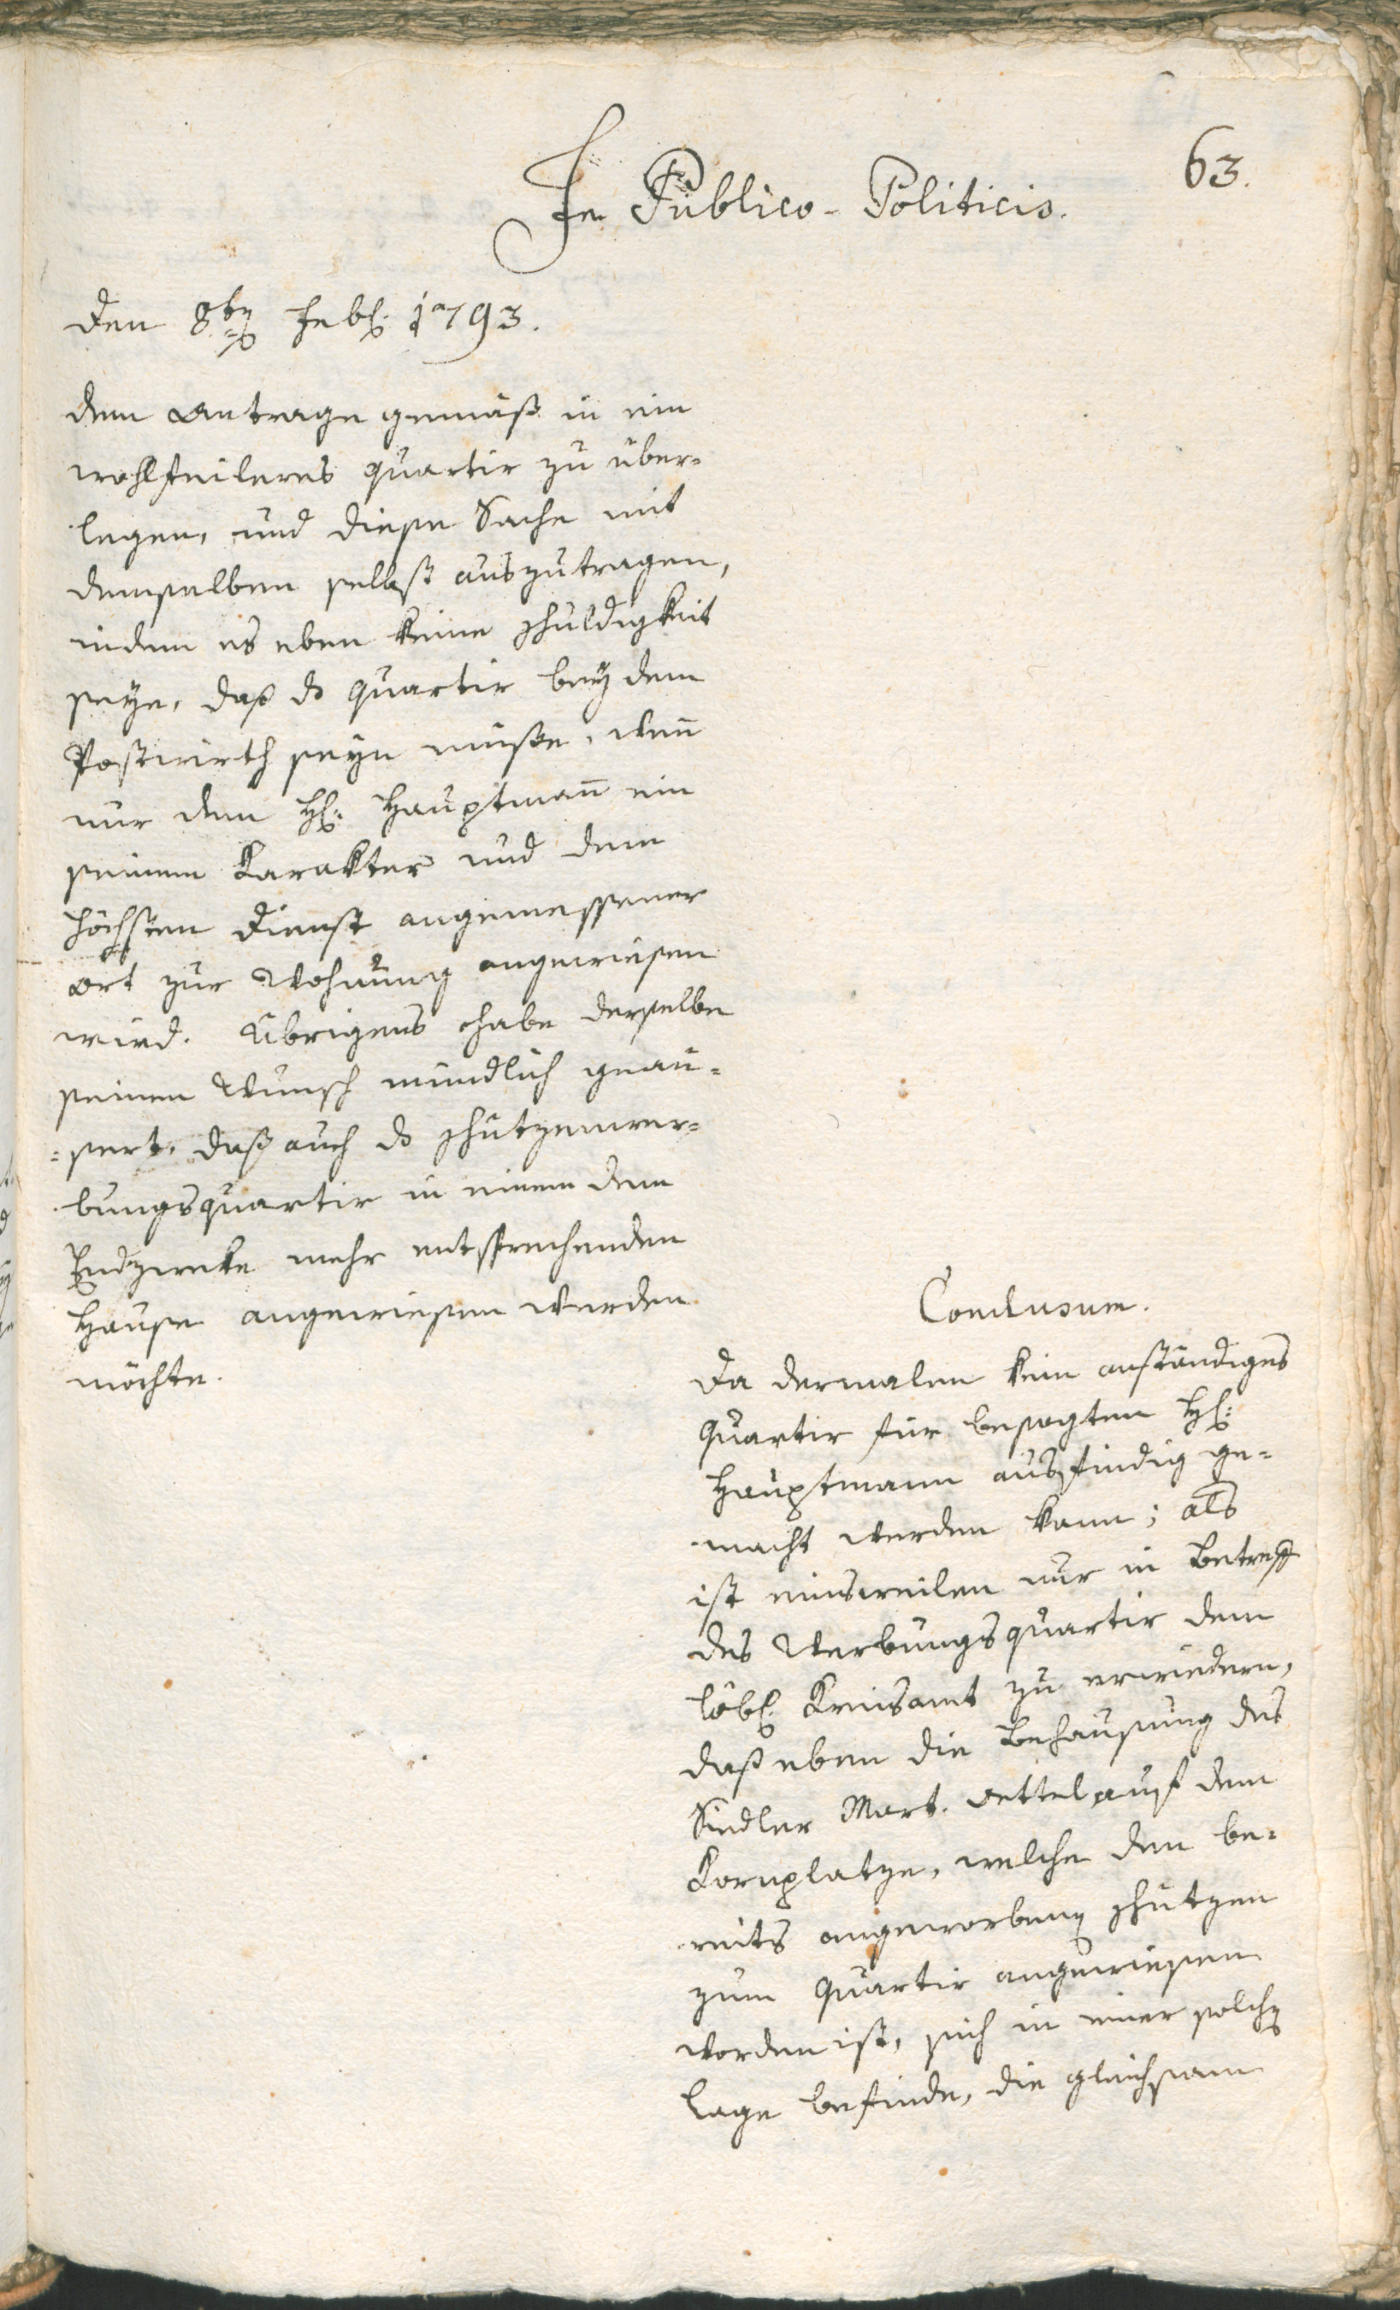 63.
In Publico-Politicis.
den 8ten Febr: 1793.
dem Antrage gemäß in ein
wohlfeileres Quartir zu über-
legen, und diese Sache mit
demselben selbst auszutragen,
indem es eben keine Schuldigkeit
seye, daß ds Quartir bey dem
Postwirth seyn müße, wen̄
nur dem H: Hauptman̄ ein
seinem Karakter und dem
höchsten Dienst angemessener
Ort zur Wohnung angewiesen
wird. Übrigens habe derselbe
seinen Wunsch mündlich geäu-
=sert, daß auch ds Schützenwer-
bungsquartir in einem dem
Endzwecke mehr entsprechenden
Hause angewiesen werden
möchte.
Conclusum.
Da dermalen kein anständiges
Quartir für besagten H:
Hauptmann ausfindig ge-
macht werden kann; als
ist einsweilen nur in Betreff
des Werbungsquartir dem
löbl: Kreisamt zu erwiedern,
daß eben die Behausung des
Siedler Mart. Oettel auf dem
Kornplatze, welche den be-
reits angeworbenen Schützen
zum Quartir angewiesen
worden ist, sich in einer solchen
Lage befinde, die gleichsam